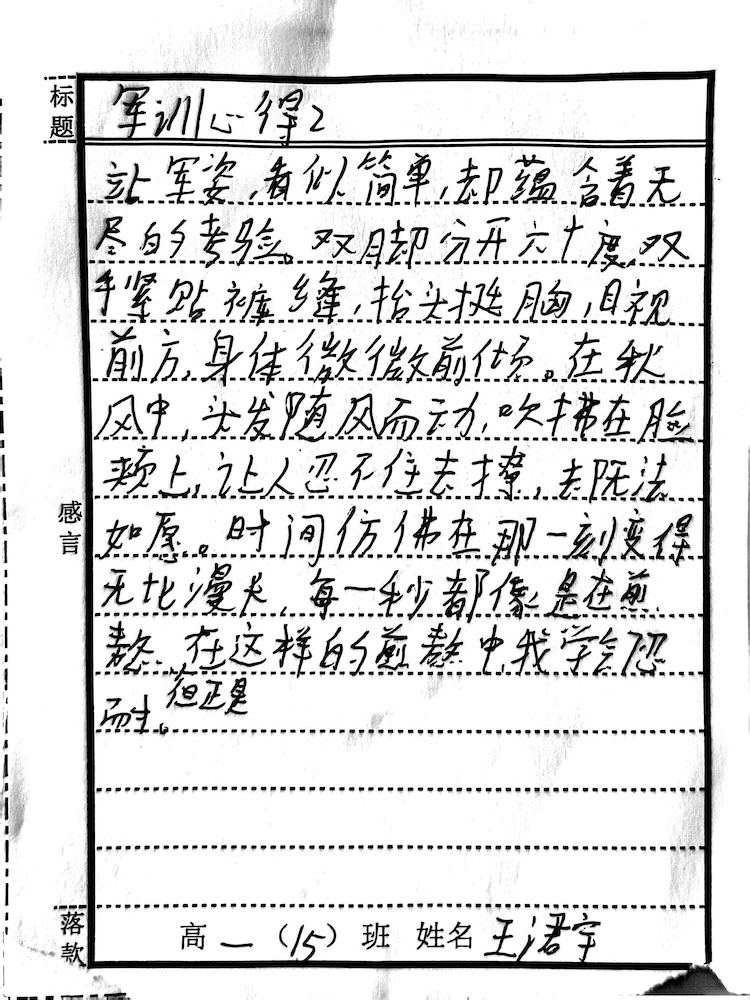 标题
军训心得2
站军姿,看似简单,却蕴含着无
尽的考验。双脚分开六十度,双
手紧贴裤缝,抬头挺胸,目视
前方,身体微微前倾。在秋
风中,头发随风而动,吹拂在脸
颊上,让人忍不住去撩,却无法
如愿。时间仿佛在那一刻变得
无比漫长,每一秒都像是在煎
熬。但正是在这样的煎熬中,我学会忍
耐。
感言
落款
高一(15)班 姓名 王涒宇